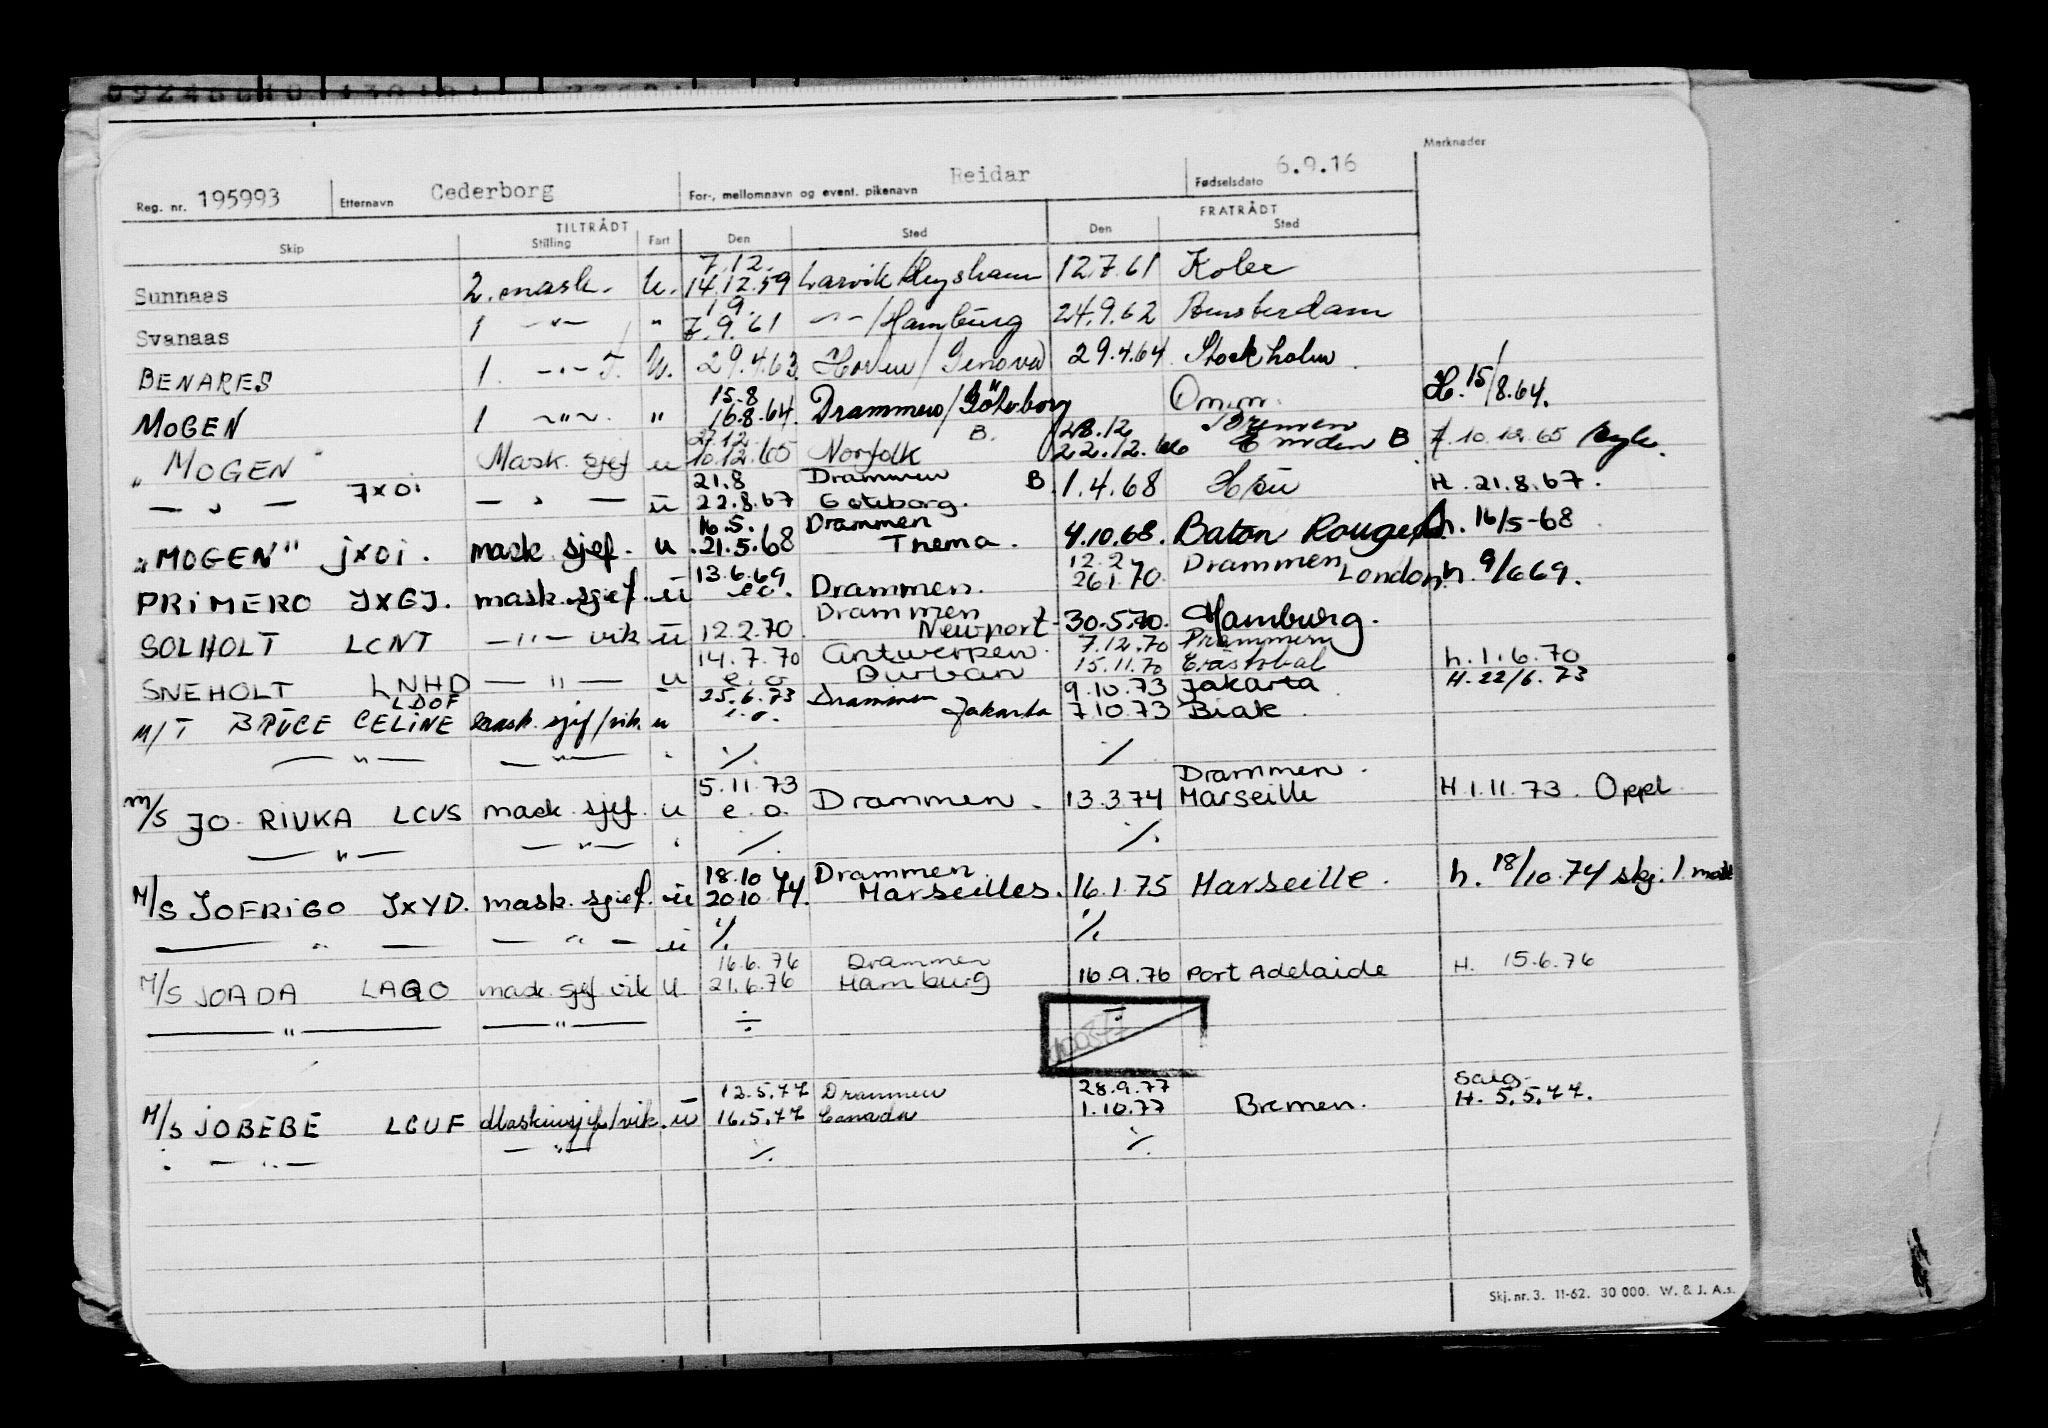 Merknader
Reg. nr. 195993 Etternavn Cederborg For-, mellomnavn og event. pikenavn Reidar Fødselsdato 6.9.16
TILTRÅDT FRATRÅDT
Skip Stilling Fart Den Sted Den Sted
7.12.
Sunnaas 2. mask. U. 14.12.59 Larvik Heysham 12.7.61 Kobe
19.
Svanaas 1 -"- " 7.9.61 -"-/Hamburg 24.9.62 Amsterdam
BENARES 1. -"- U. 29.4.63. Horten/Genova 29.4.64 Stockholm
15.8
MOGEN 1 -"- " 16.8.64. Drammen/Göteborg Om.m. H. 15/8.64.
27.12 B. 28.12 Bremen
"MOGEN" Mask. sjef u 10.12.65 Norfolk 22.12.66 Emden B 10.12.65
21.8 Drammen
— " — JXOI — " — u 22.8.67 Göteborg. B. 1.4.68 H. 21.8.67.
16.5. Drammen
"MOGEN" JXOI. mask. sjef. u .21.5.68 Thema. 4.10.68. Baton Rouge h. 16/5-68
13.6.69 12.2 Drammen
PRIMERO JXGJ. mask. sjef. u e.o. Drammen. 26.1.70. London h. 9/6 69.
Drammen
SOLHOLT LCNT —"— vik u 12.2.70. Newport 30.5.70. Hamburg.
14.7.70 Antwerpen. 7.12.70 Drammen
SNEHOLT LNHD — " — u e.o Durban 15.11.70 h. 1.6.70
LDOF 25.6.73 Drammen 9.10.73 Jakarta H. 22/6.73
M/T BRUCE CELINE mask. sjef/vik. u e.o. Jakarta 7.10.73 Biak.
— " — — " — " ·/. ·/.
5.11.73 Drammen.
M/S JO RIVKA LCVS mask. sjef. u e.o. Drammen. 13.3.74 Marseille H 1.11.73. Oppl.
— " — — " — " ·/. ·/.
18.10 Drammen
M/S JOFRIGO JXYD. mask. sjef. u 20.10.74. Marseilles. 16.1.75 Marseille. h. 18/10.74 skj. 1. mask
— " — — " — u ·/. ·/.
16.6.76 Drammen
M/S JOADA LAQO mask. sjef vik u. 21.6.76 Hamburg 16.9.76 Port Adelaide H. 15.6.76
— " — — " — ÷ ÷
12.5.77 Drammen 28.9.77 Salg.
M/S JOBEBE LCUF Maskinsjef/vik. u 16.5.77 Canada 1.10.77 Bremen. H. 5.5.77.
— " — — " — ·/. ·/.
Skj. nr. 3. 11-62. 30 000. W. & J. A.s.